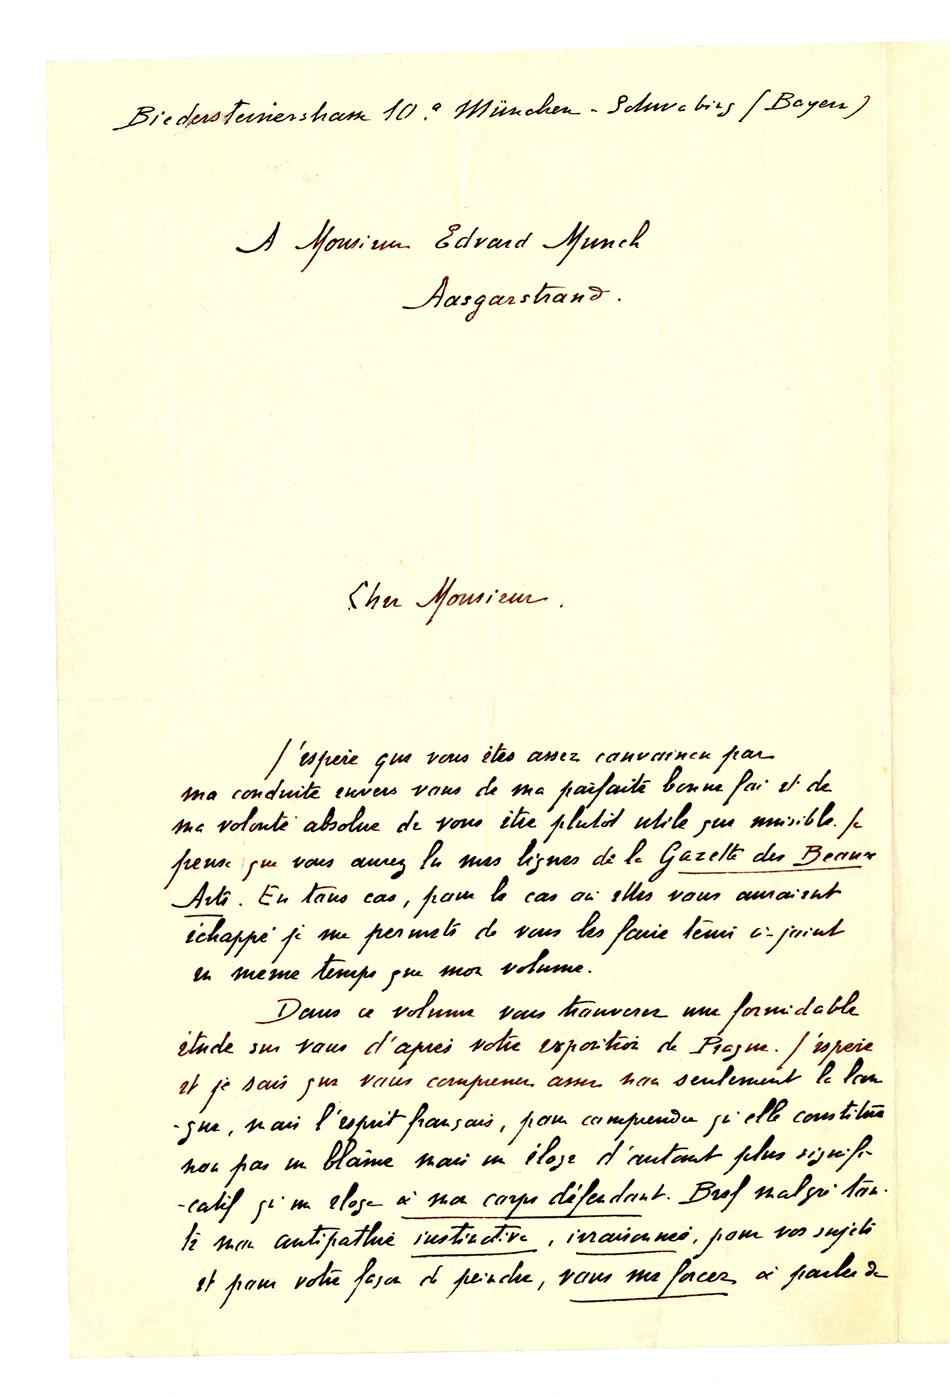 Biedersteinerstrasse 10.a München - Schwabing (Bayern)
A Monsieur Edvard Munch
Aasgarstrand.
Cher Monsieur.
J'espère que vous êtes assez convaincu par
ma conduite envers vous de ma parfaite bonne foi et de
ma volonté absolue de vous être plutôt utile que nuisible. Je
pense que vous aurez lu mes lignes de la Gazette des Beaux
Arts. En tous cas, pour le cas où elles vous auraient
échappé je me permets de vous les faire tenir ci-joint
en même temps que mon volume.
Dans ce volume vous trouverez une formidable
étude sur vous d'après votre exposition de Prague. J'espère
et je sais que vous comprenez assez non seulement la lan
-gue, mais l'esprit français, pour comprendre qu'elle constitue
non pas un blâme mais un éloge d'autant plus signifi-
-catif qu'un éloge à mon corps défendant. Bref malgré tou-
te mon antipathie instinctive, irraisonnée, pour vos sujets
et pour votre façon de peindre, vous me forcez à parler de